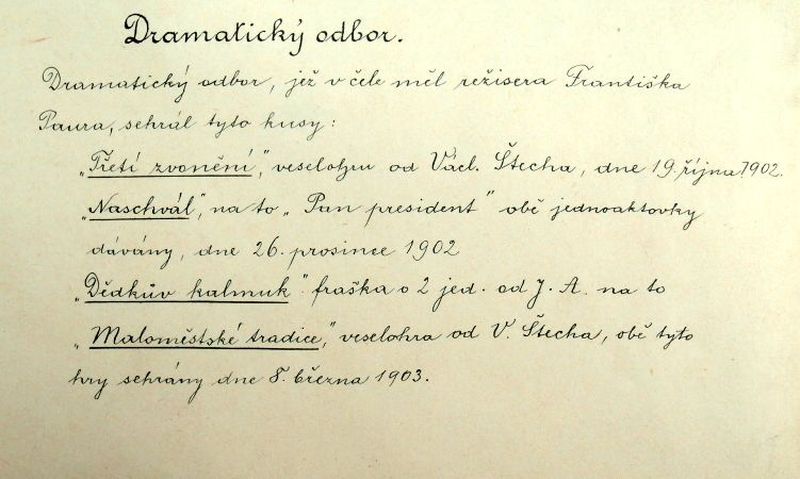 Dramatický odbor.
Dramatický odbor, jež v čele měl režisera Františka
Paura, sehrál tyto kusy:
„Třetí zvonění", veselohru od Václ. Štecha, dne 19. října 1902.
„Naschvál", na to „Pan president" obě jednoaktovky
dávány, dne 26. prosince 1902
„Dědkův kalmuk" fraška o 2 jed. od J. A. na to
„Maloměstské tradice", veselohra od V. Štecha, obě tyto
hry sehrány dne 8. března 1903.